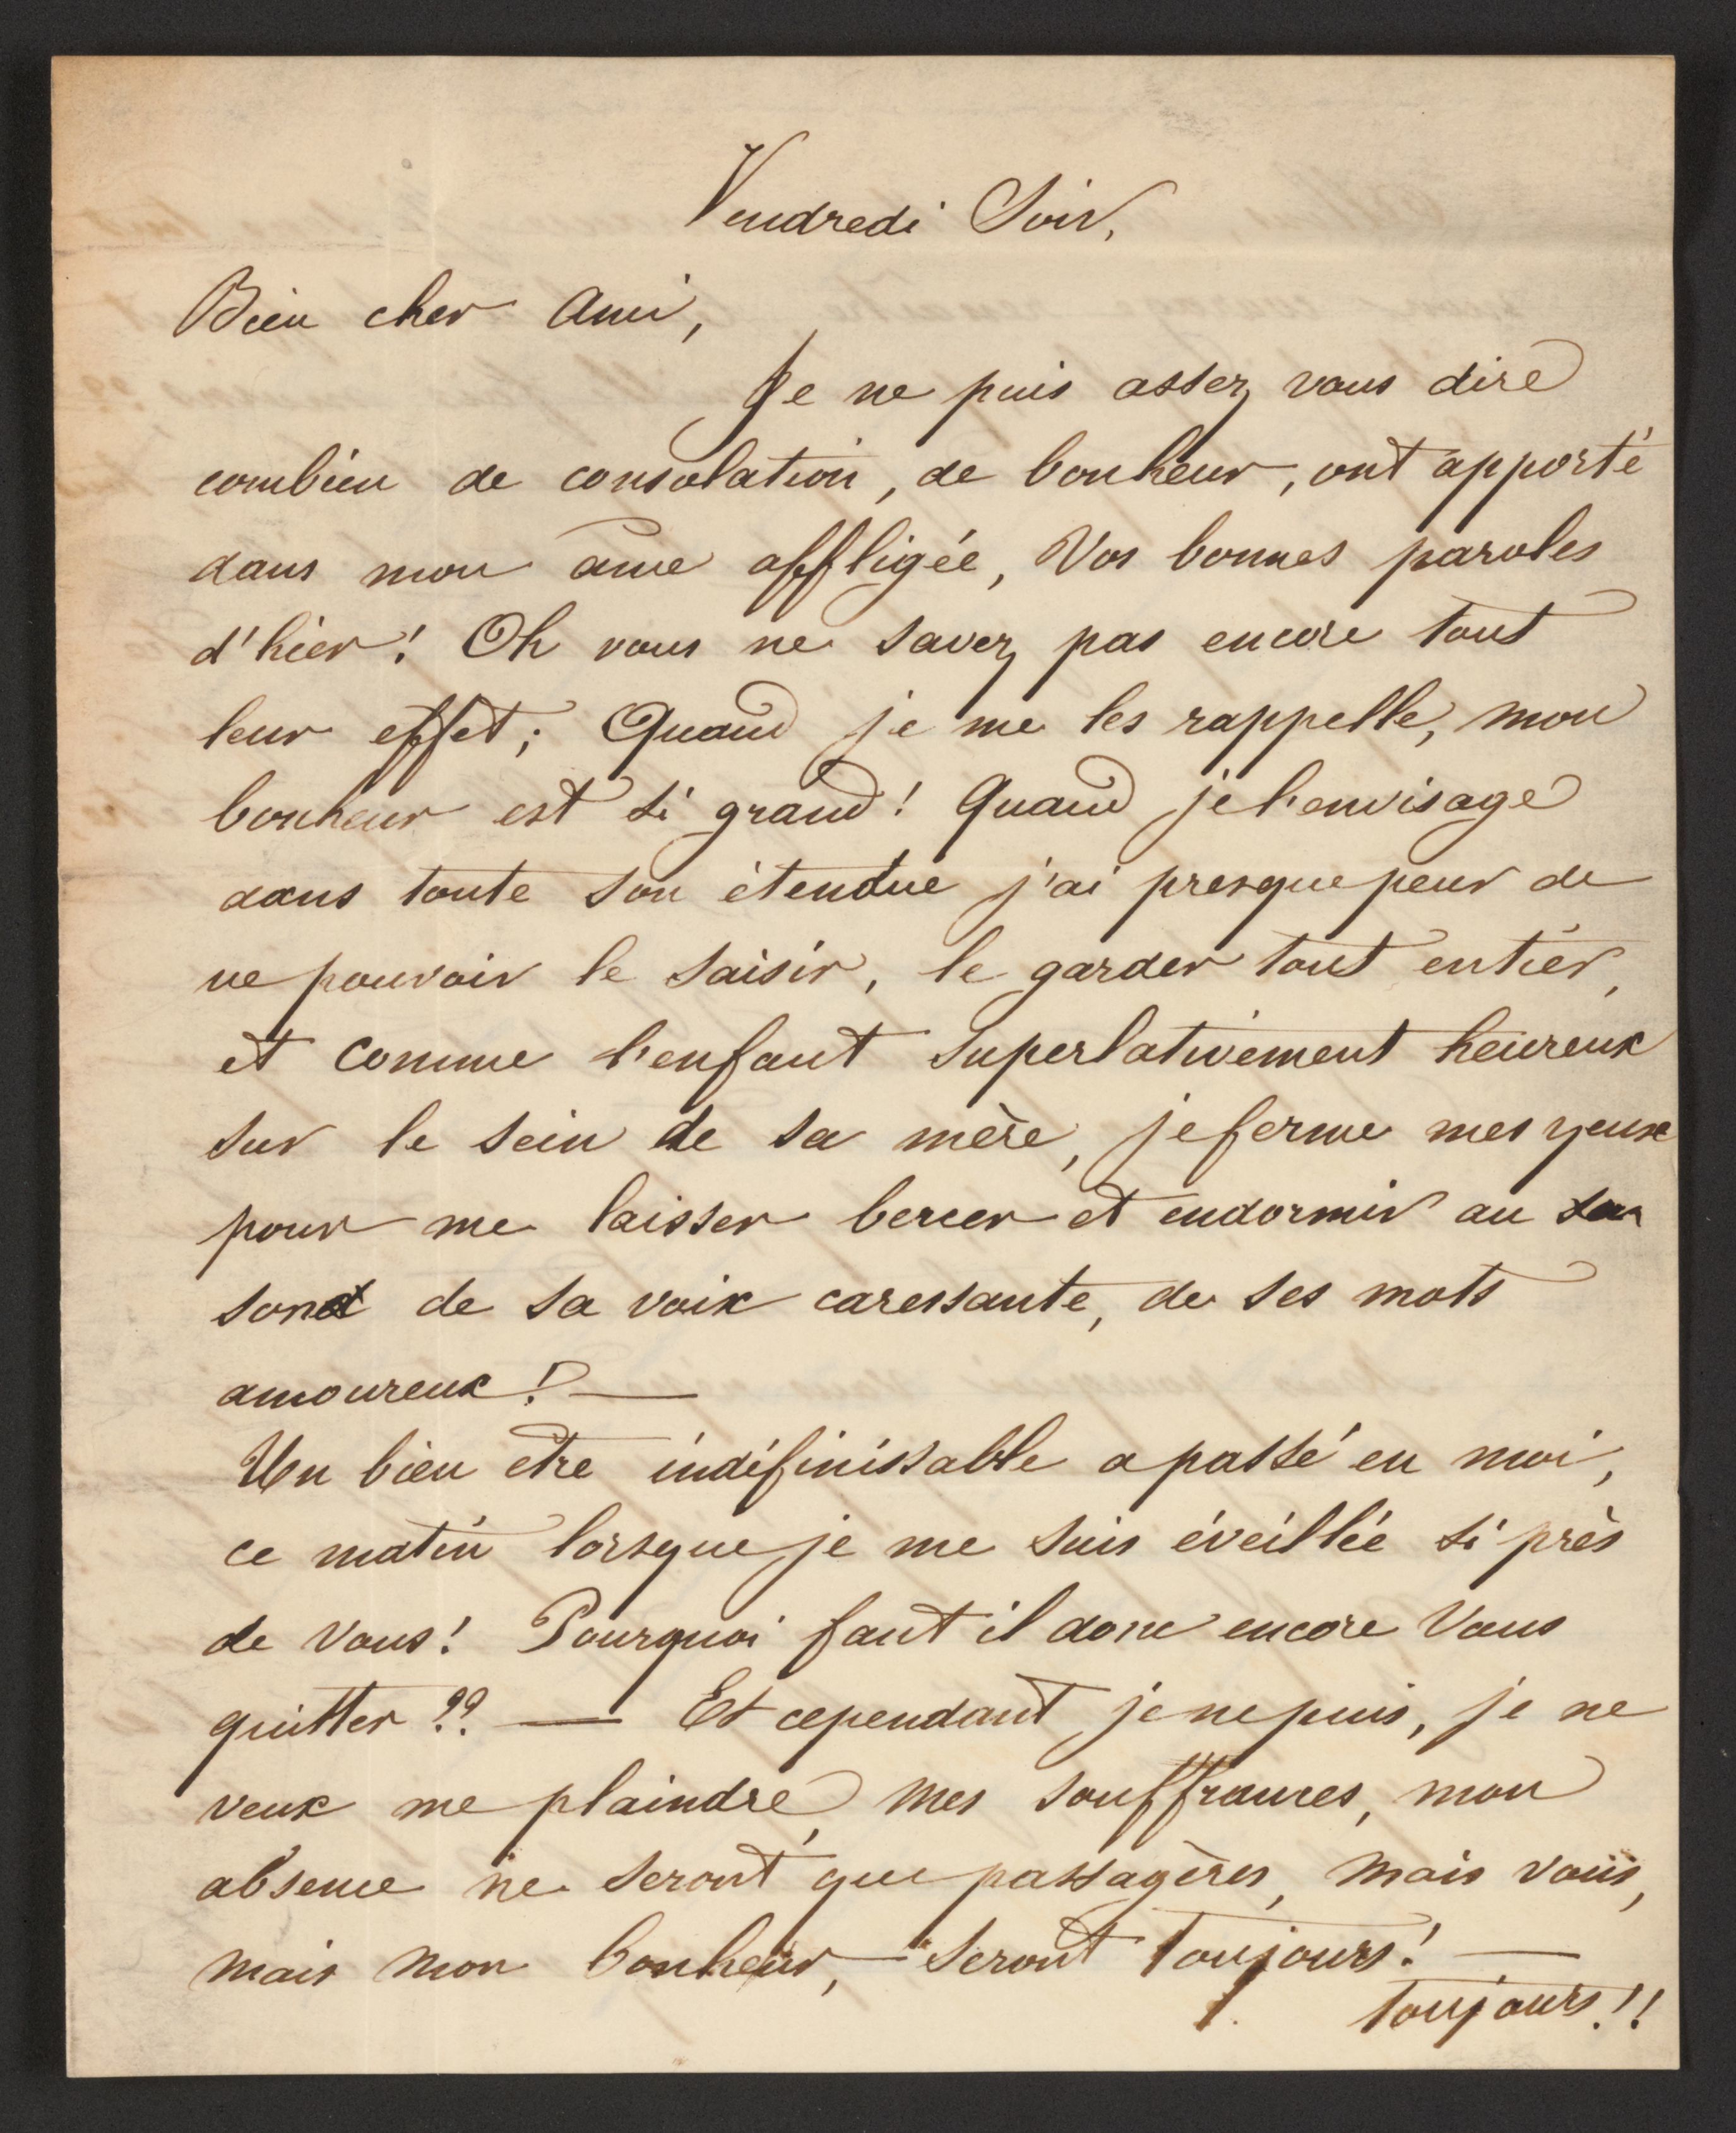 Vendredi Soir,
Bien cher Ami,
Je ne puis assez vous dire
combien de consolation, de bonheur, ont apporté
dans mon âme affligée, Vos bonnes paroles
d'hier! Oh vous ne savez pas encore tout
leur effet; Quand je me les rappelle, mon
bonheur est si grand! Quand je l'envisage
dans toute son étendue j'ai presque peur de
ne pouvoir le saisir, le garder tout entier,
et comme l'enfant superlativement heureux
sur le sein de sa mère, je ferme mes yeux
pour me laisser bercer et endormir au
son de sa voix caressante, de ses mots
amoureux! —
Un bien etre indéfinissable a passé en moi,
ce matin lorsque je me suis éveillée si près
de Vous! Pourquoi faut il donc encore Vous
quitter?? — Et cependant je ne puis, je ne
veux me plaindre, mes souffrances, mon
absence ne seront que passagères, mais vous,
mais mon bonheur, — seront toujours! —
toujours!!